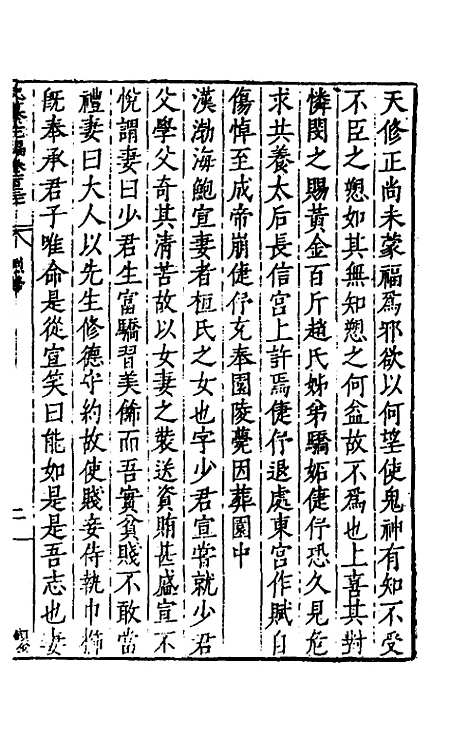 天修正尚未蒙福爲邪欲以何望使鬼神有知不受
不臣之愬如其無知愬之何益故不爲也上喜其對
憐閔之賜黃金百斤趙氏姊弟驕妬倢伃恐久見危
求共養太后長信宮上許焉倢伃退處東宮作賦自
傷悼至成帝崩倢伃充奉園陵薨因葬園中
漢渤海鮑宣妻者桓氏之女也字少君宣嘗就少君
父學父奇其清苦故以女妻之裝送資賄甚盛宣不
悅謂妻曰少君生富驕習美飾而吾實貧賤不敢當
禮妻曰大人以先生修德守約故使賤妾侍執巾櫛
旣奉承君子唯命是從宣笑曰能如是是吾志也妻
二